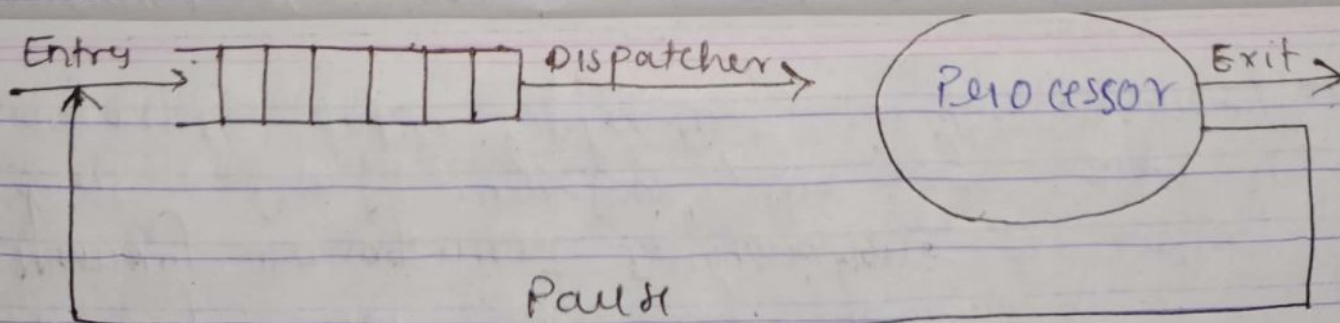 Entry
Dispatcher
Processor
Exit
Pause